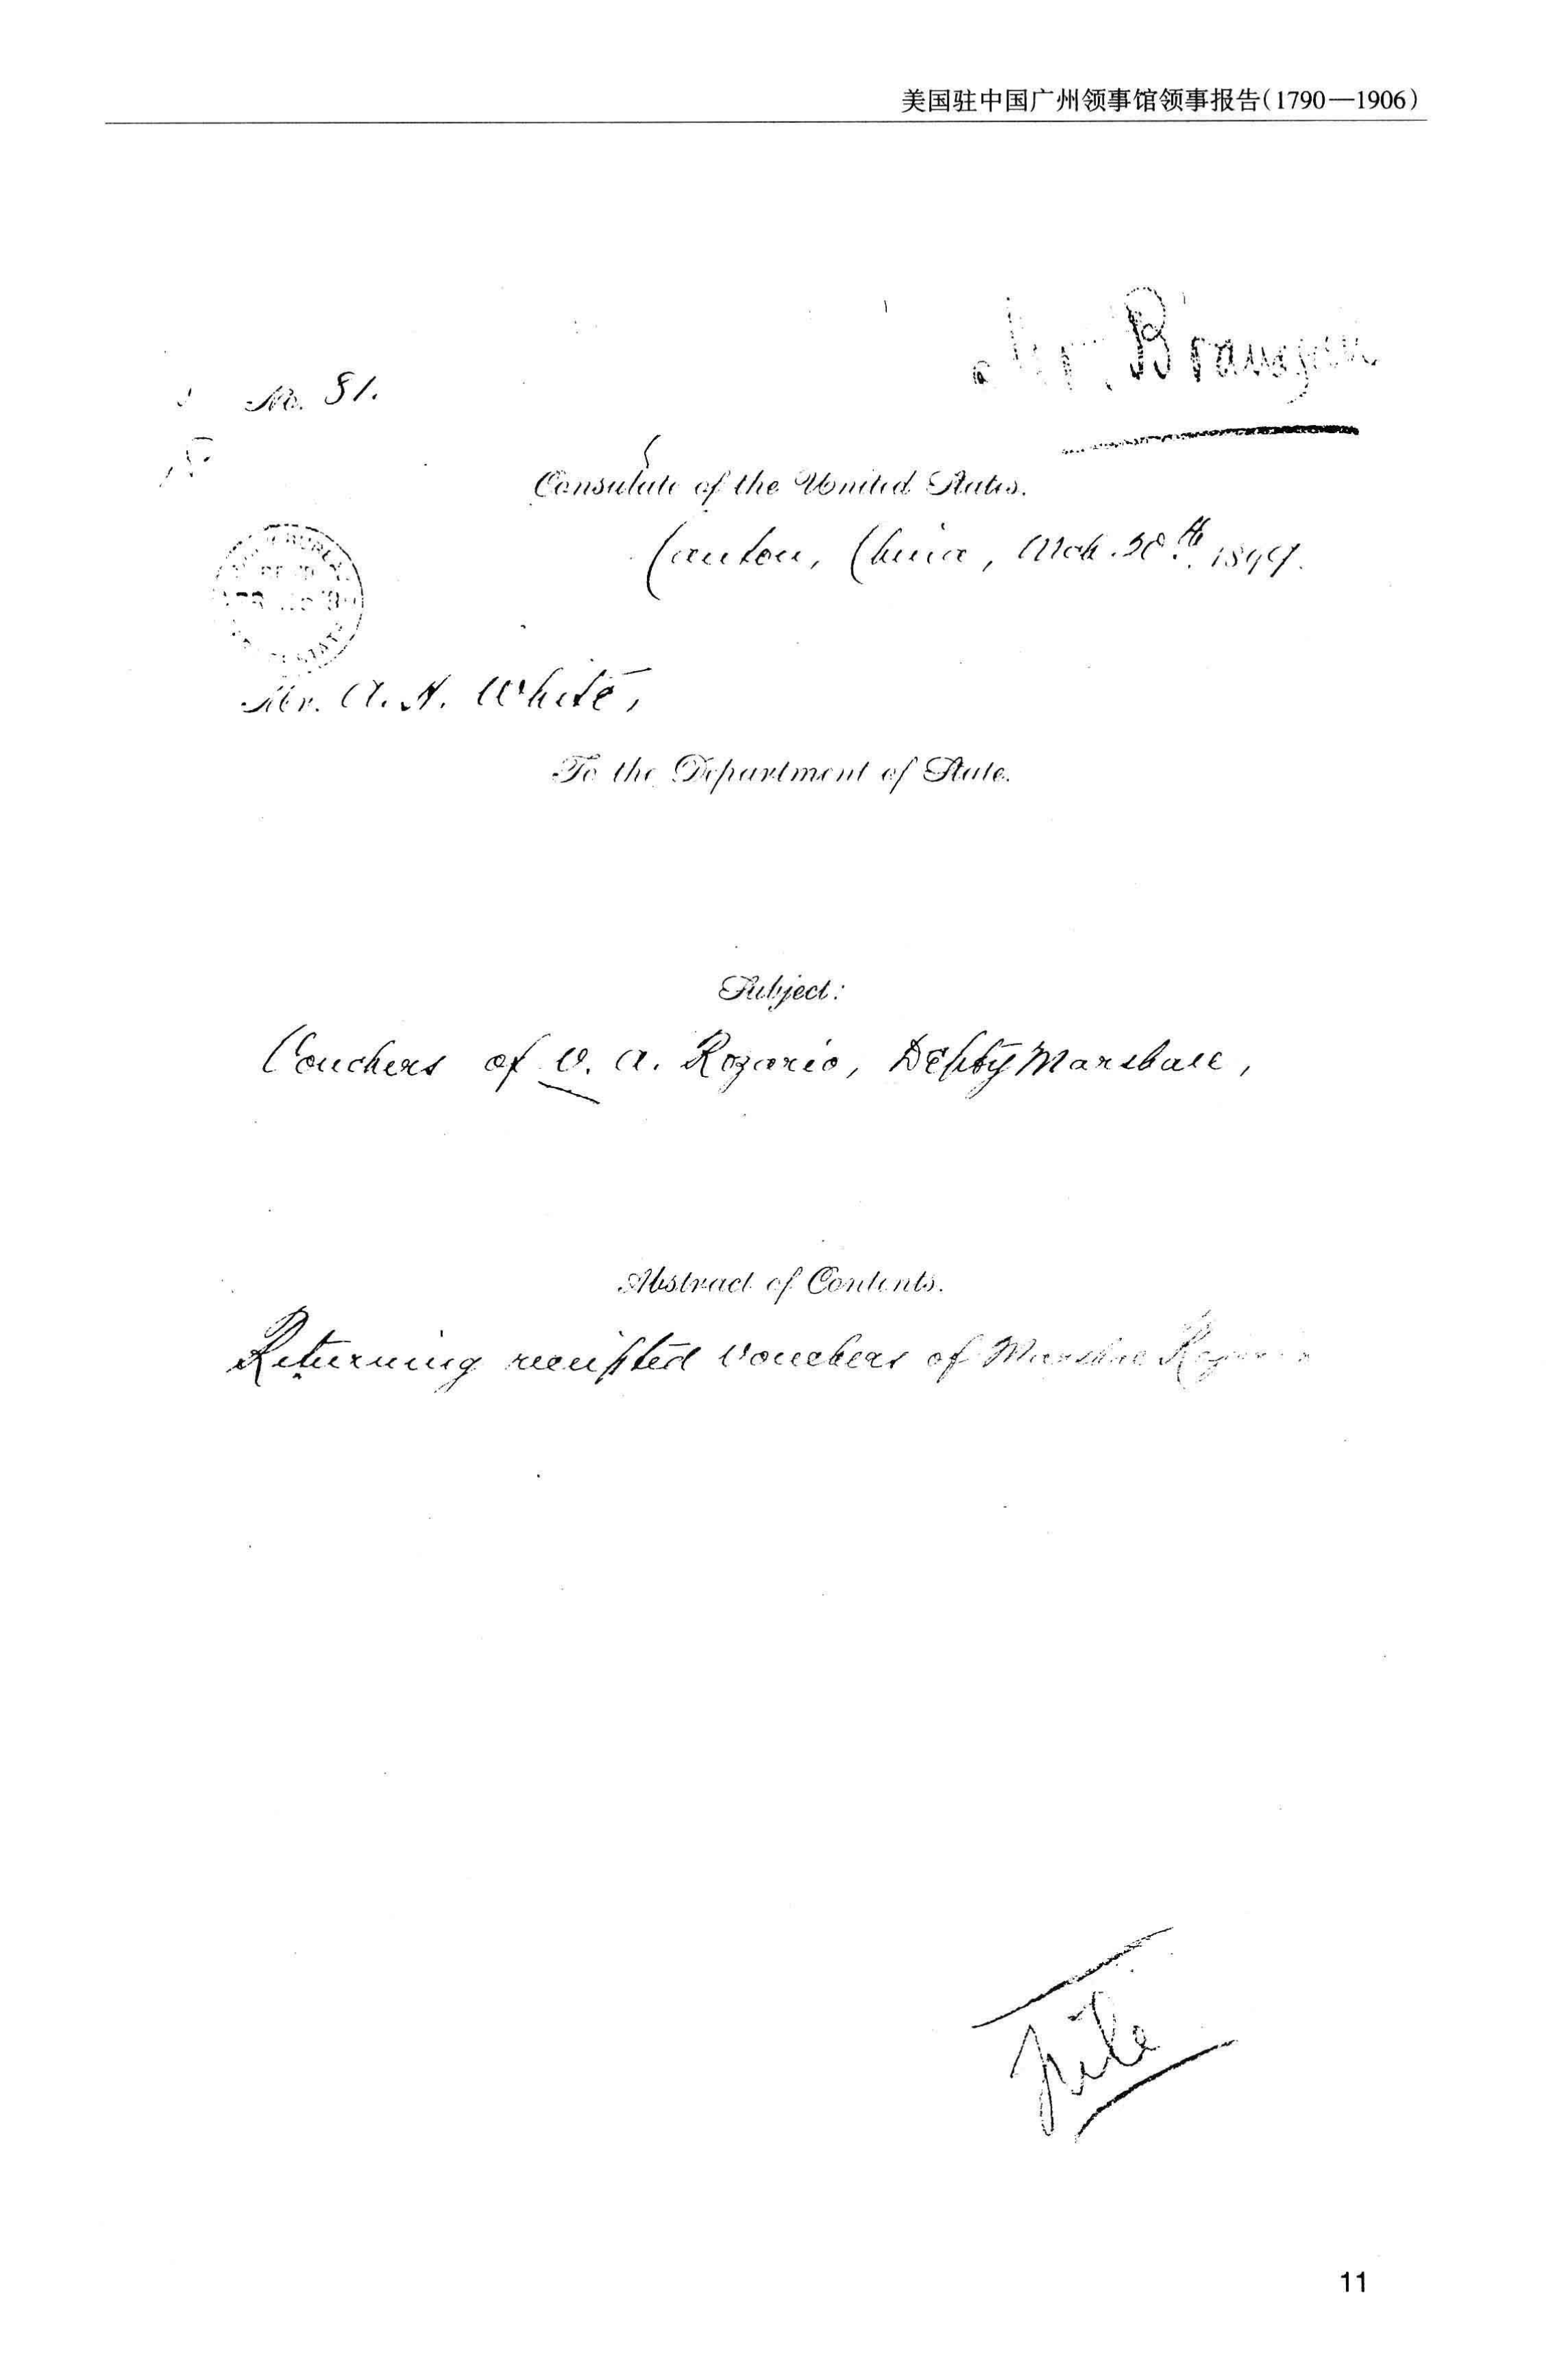 美国驻中国广州领事馆领事报告(1790—1906)
Mr. Branagan
No. 81.
Consulate of the United States.
Canton, China, Mch. 30th, 1899.
Mr. A. H. White,
To the Department of State.
Subject:
Vouchers of V. A. Rozario, Depty Marshall,
Abstract of Contents.
Returning receipted vouchers of
File
11